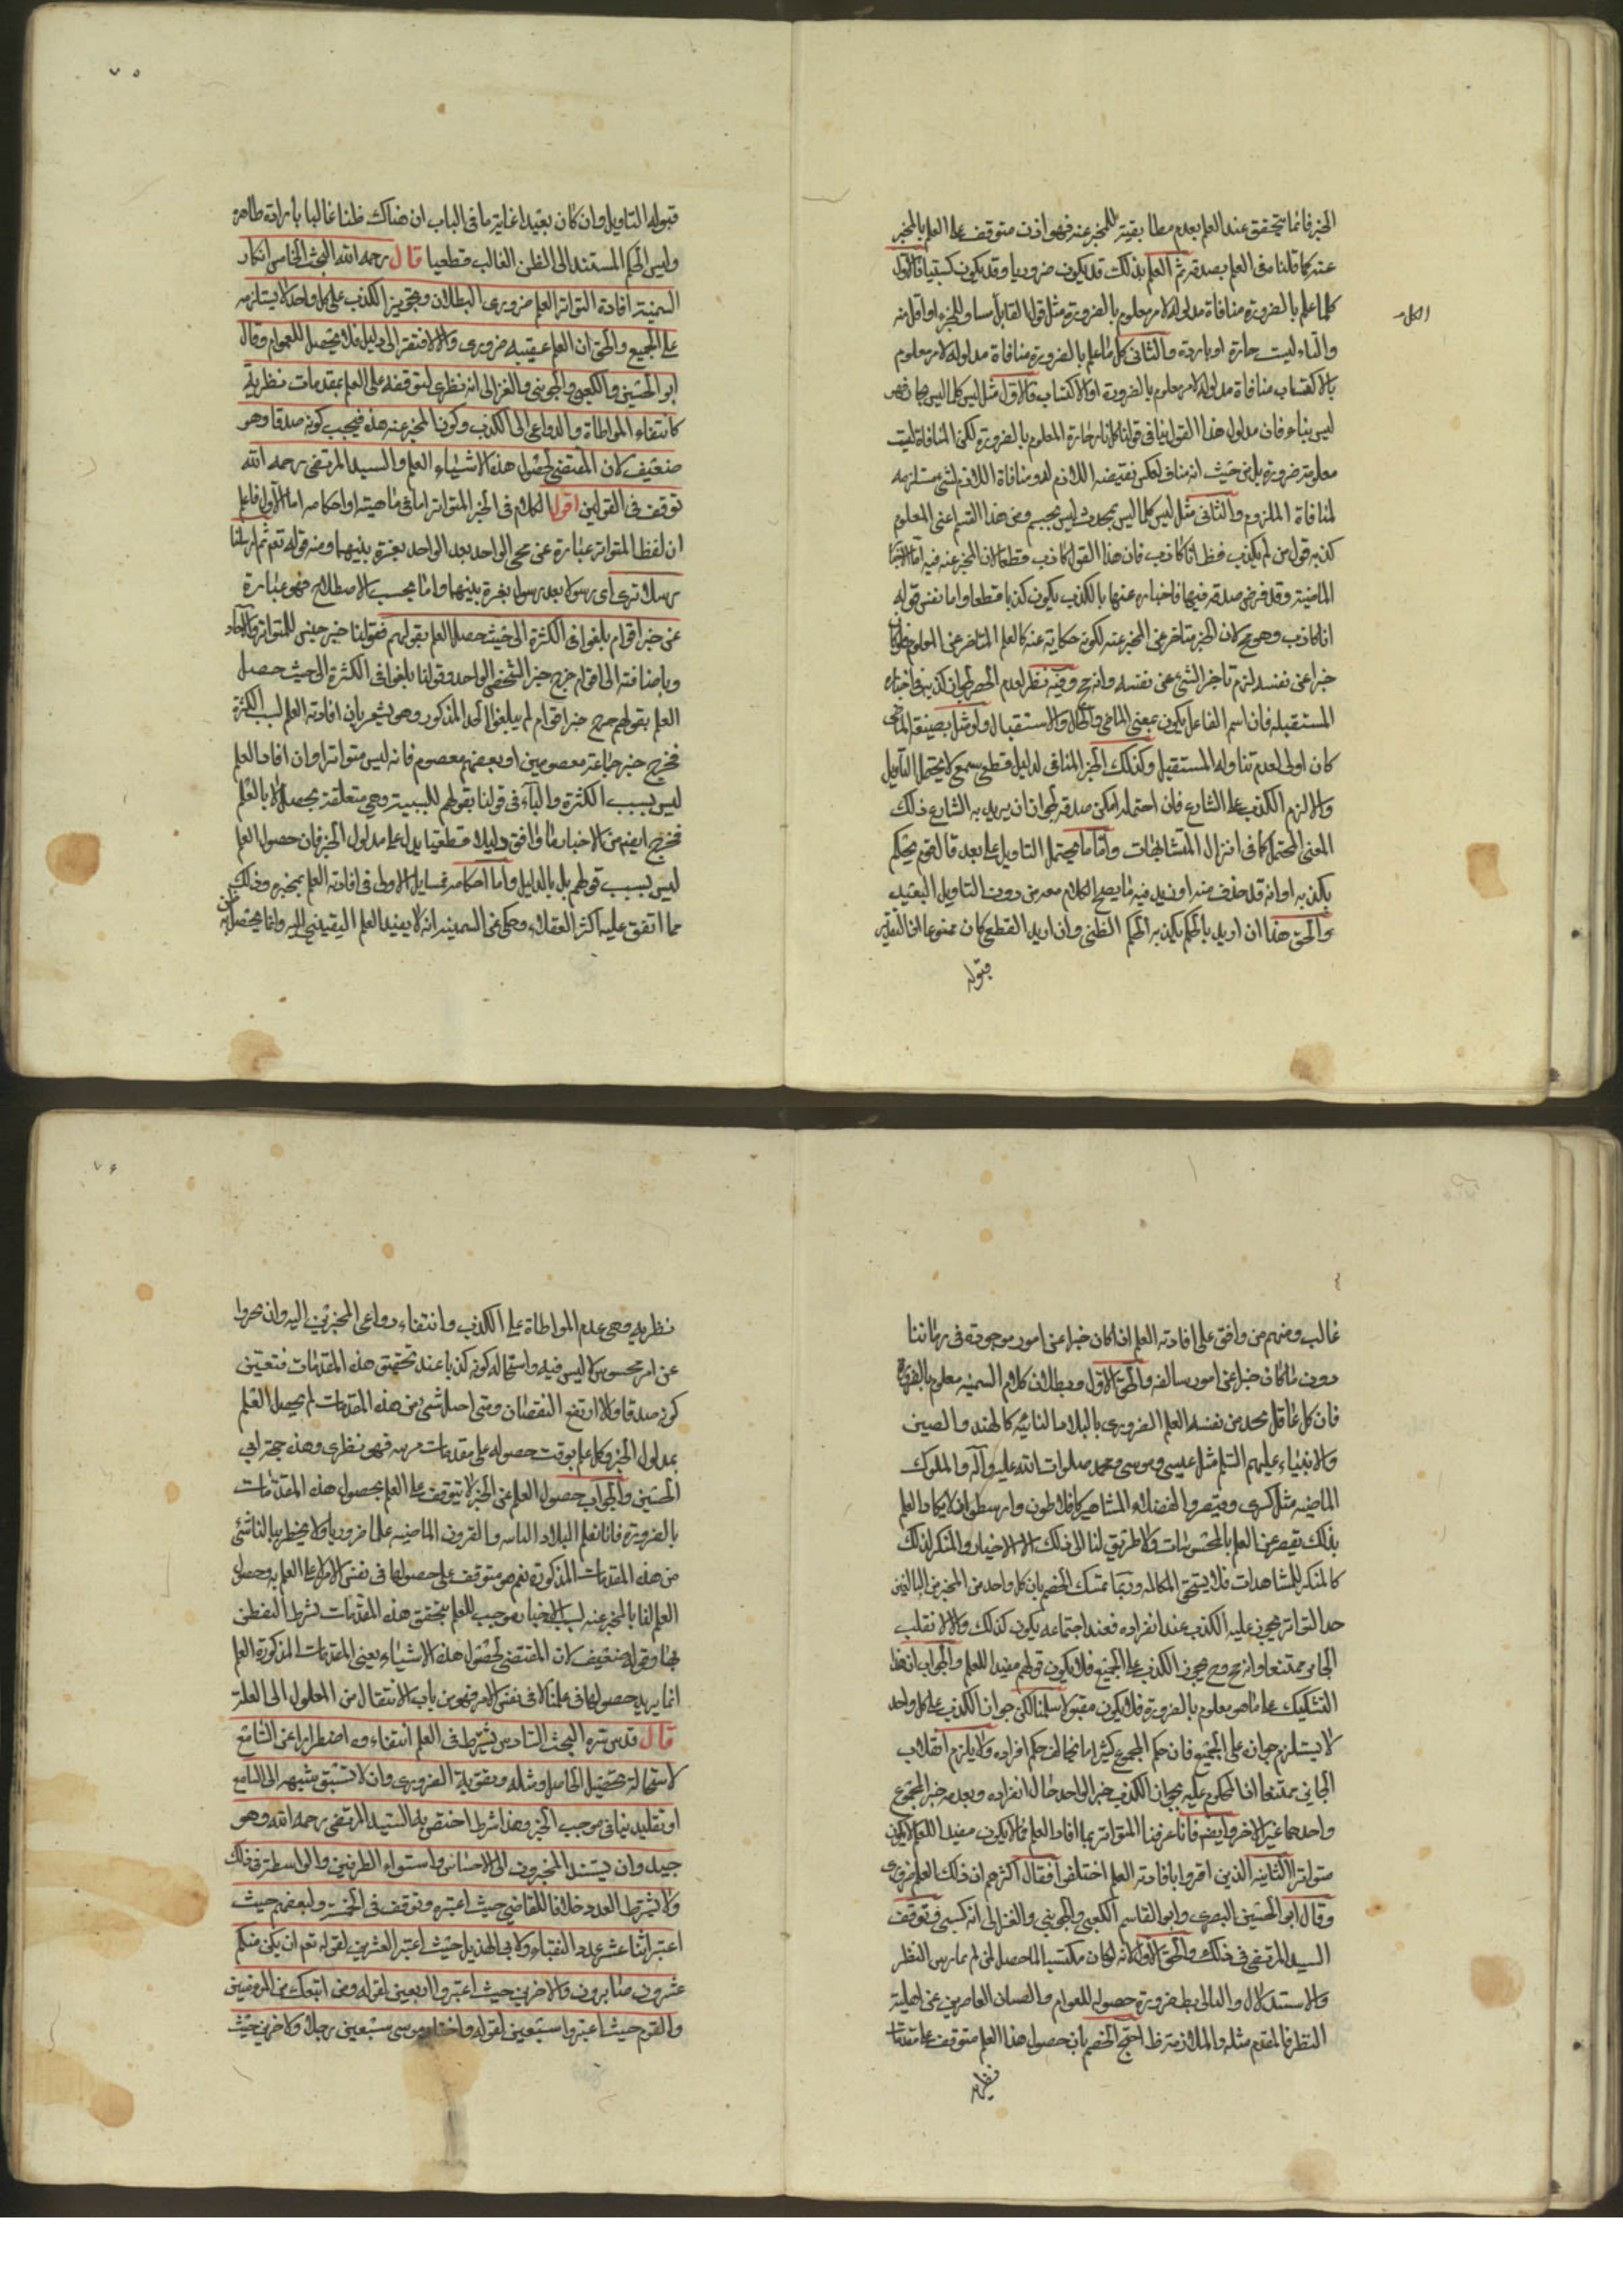 الخبر فانما يتحقق عند العلم بعدم مطابقته للمخبر عنه فهو اذن متوقف على العلم بالمخبر
عنه كما قلنا فى العلم بصدقه ثم العلم بذلك قد يكون ضروريا وقد يكون كسبيا فالاول
كلما علم بالضرورة منافاة مدلوله لامر معلوم بالضرورة مثل قول القايل الكل مساو للجزء او اقل منه
والنار ليست حارة او باردة والثانى كل ما علم بالضرورة منافاة مدلوله لامر معلوم
بالاكتساب منافاة مدلوله لامر معلوم بالضرورة او الاكتساب فالاول مثل ليس كلما ليس بحار فهو
ليس بنار فان مدلول هذا القول ينافى قولنا كل نار حارة المعلوم بالضرورة لكن المنافاة ليست
معلومة ضرورة بل من حيث انه مناف لعكس نقيضه اللازم له ومنافاة اللازم لشئ مستلزمه
لمنافاة الملزوم والثانى مثل ليس كلما ليس بمحدث ليس بجسم ومن هذا القسم اعنى المعلوم
كذبه قول من لم يكذب قط انا كاذب فان هذا القول كاذب قطعا لان المخبر عنه فيه اما الاخبار
الماضية وقد فرض صدقه فيها فاخباره عنها بالكذب يكون كذبا قطعا واما نفس قوله
انا كاذب وهو مح لان الخبر متاخر عن المخبر عنه لكونه حكاية عنه كالعلم المتاخر عن المعلوم فلو كان
خبرا عن نفسه لزم تاخر الشئ عن نفسه وانه مح وفيه نظر لعدم الحصر لجواز كذبه فى اخباره
المستقبله فان اسم الفاعل يكون بمعنى الماضى والحال والاستقبال ولو مثل بصيغة الماضى
كان اولى لعدم تناوله المستقبل وكذلك الخبر المنافى لدليل قطعى سمعى لا يحتمل التاويل
والا لزم الكذب على الشارع فان احتمله امكن صدقه لجواز ان يريد به الشارع ذلك
المعنى المحتمل كما فى انزال المتشابهات واما ما يحتمل التاويل على بعد قال قوم يحكم
بكذبه او انه قد حذف منه او زيد فيه ما يصح الكلام معه من دون التاويل البعيد
والحق هذا ان اريد بالحكم بكذبه الحكم الظنى وان اريد القطع كان ممنوعا اذ التقدير
قبوله
الكل
٧٥
قبوله التاويل وان كان بعيدا غاية ما فى الباب ان هناك ظنا غالبا بارادة ظاهره
وليس الحكم المستند الى الظن الغالب قطعيا قال رحمه الله البحث الخامس انكار
السمنية افادة التواتر العلم ضرورى البطلان وتجويز الكذب على كل واحد لا يستلزمه
على الجميع والحق ان العلم عقيبه ضرورى والا لافتقر الى دليل فلا يحصل للعوام وقال
ابو الحسين والكعبى والجوينى والغزالى انه نظرى لتوقفه على العلم بمقدمات نظرية
كانتفاء المواطاة والدواعى الى الكذب وكون المخبر عنه هذه فيجب كونه صدقا وهو
ضعيف لان المقتضى لحصول هذه الاشياء العلم والسيد المرتضى رحمه الله
توقف فى القولين اقول الكلام فى الخبر المتواتر اما فى ماهيته او احكامه اما الاول فاعلم
ان لفظ المتواتر عبارة عن مجئ الواحد بعد الواحد بفترة بينهما ومنه قوله تعم ثم ارسلنا
رسلنا تترى اى رسولا بعد رسول بفترة بينهما واما بحسب الاصطلاح فهو عبارة
عن خبر اقوام بلغوا فى الكثرة الى حيث حصل العلم بقولهم فقولنا خبر جنس للمتواتر والآحاد
وباضافته الى اقوام خرج خبر الشخص الواحد وقولنا بلغوا فى الكثرة الى حيث حصل
العلم بقولهم خرج خبر اقوام لم يبلغوا الحد المذكور وهو يشعر بان افادته العلم لسبب الكثرة
فخرج خبر جماعة معصومين او بعضهم معصوم فانه ليس متواترا وان افاد العلم
ليس بسبب الكثرة والباء فى قولنا بقولهم للسببية وهى متعلقة بحصل لا بالعلم
فخرج ايضم من الاخبار ما وافق دليلا قطعيا يدل على مدلول الخبر فان حصول العلم
ليس بسبب قولهم بل بالدليل واما احكامه فمسايل الاولى فى افادته العلم بمخبره وذلك
مما اتفق عليه اكثر العقلاء وحكى عن السمنيه انه لا يفيد العلم اليقينى البته وانما يحصل به ظن
غالب ومنهم من وافق على افادته العلم اذا كان خبرا عن امور موجودة فى زماننا
دون ما كان خبرا عن امور سالفه والحق الاول وبطلان كلام السمنيه معلوم بالضرورة
فان كل عاقل يجد من نفسه العلم الضرورى بالبلاد النائيه كالهند والصين
والانبياء عليهم السلم مثل عيسى وموسى ومحمد صلوات الله عليه وآله والملوك
الماضيه مثل كسرى وقيصر والفضلاء المشاهير كافلاطون وارسطو اذ لا يكاد العلم
بذلك يقصر عن العلم بالمحسوسات ولا طريق لنا الى ذلك الا الاخبار والمنكر لذلك
كالمنكر للمشاهدات فلا يستحق المكالمه وربما تمسك الخصم بان كل واحد من المخبرين البالغين
حد التواتر يجوز عليه الكذب عند انفراده فعند اجتماعه يكون كذلك والا لانقلب
الجايز ممتنعا وانه مح وح يجوز الكذب على الجميع فلا يكون قولهم مفيدا للعلم والجواب ان هذا
التشكيك على ما هو معلوم بالضرورة فلا يكون مقبولا سلمنا لكن جواز الكذب على كل واحد
لا يستلزم جوازه على الجميع فان حكم المجموع كثيرا ما يخالف حكم افراده ولا يلزم انقلاب
الجايز ممتنعا اذ المحكوم عليه بجواز الكذب خبر الواحد حال انفراده وبعدمه خبر المجموع
واحدهما غير الاخر وايضم فانا عرفنا المتواتر بما افاد العلم فما لا يكون مفيدا للعلم لا يكون
متواترا الثانيه الذين اقروا بافادته العلم اختلفوا فقال اكثرهم ان ذلك العلم ضرورى
وقال ابو الحسين البصرى وابو القاسم الكعبى والجوينى والغزالى انه كسبى وتوقف
السيد المرتضى فى ذلك والحق الاول لانه لو كان مكتسبا لما حصل لمن لم يمارس النظر
والاستدلال والتالى بط ضرورة حصوله للعوام والصبيان العاجزين عن اهلية
النظر فالمقدم مثله والملازمة ظ احتج الخصم بان حصول هذا العلم متوقف على مقدمات
نظريه
٧٦
نظريه وهى عدم المواطاة على الكذب وانتفاء دواعى المخبرين اليه وان يخبروا
عن امر محسوس لا لبس فيه واستحالة كونه كذبا عند تحقق هذه المقدمات فتعين
كونه صدقا والا ارتفع النقيضان ومتى اختل شئ من هذه المقدمات لم يحصل العلم
بمدلول الخبر وكل علم يوقف حصوله على مقدمات مرتبه فهو نظرى وهذه حجة ابى
الحسين والجواب حصول العلم عن الخبر لا يتوقف على العلم بحصول هذه المقدمات
بالضرورة فانا نعلم البلاد النائيه والقرون الماضيه علما ضروريا ولا يخطر ببالنا شئ
من هذه المقدمات المذكورة نعم هو متوقف على حصولها فى نفس الامر لا على العلم به وحصول
العلم لنا بالمخبر عنه بسبب الاخبار موجب للعلم بتحقق هذه المقدمات بشرط التفطن
لها وقوله ضعيف لان المقتضى لحصول هذه الاشياء يعنى المقدمات المذكورة العلم
انما يريد حصولها فى علمنا لا فى نفس الامر فهو من باب الانتقال من المعلول الى العلة
قال قدس سره البحث السادس يشترط فى العلم انتفاءه اضطرارا عن السامع
لاستحالة تحصيل الحاصل ومثله وتقوية الضرورى وان لا تسبق شبهه الى السامع
او تقليد ينافى موجب الخبر وهذا شرط اختص به السيد المرتضى رحمه الله وهو
جيد وان يستند المخبرون الى الاحساس واستواء الطرفين والواسطة فى ذلك
ولا يشترط العدد خلافا للقاضى حيث اعتبره وتوقف فى الخمسة ولبعضهم حيث
اعتبر اثنا عشر عدد النقباء ولابى الهذيل حيث اعتبر العشرين لقوله تعم ان يكن منكم
عشرون صابرون والاخرين حيث اعتبروا اربعين لقوله ومن اتبعك من المومنين
والقوم حيث اعتبروا سبعين لقوله واختار موسى سبعين رجلا ولاخرين حيث